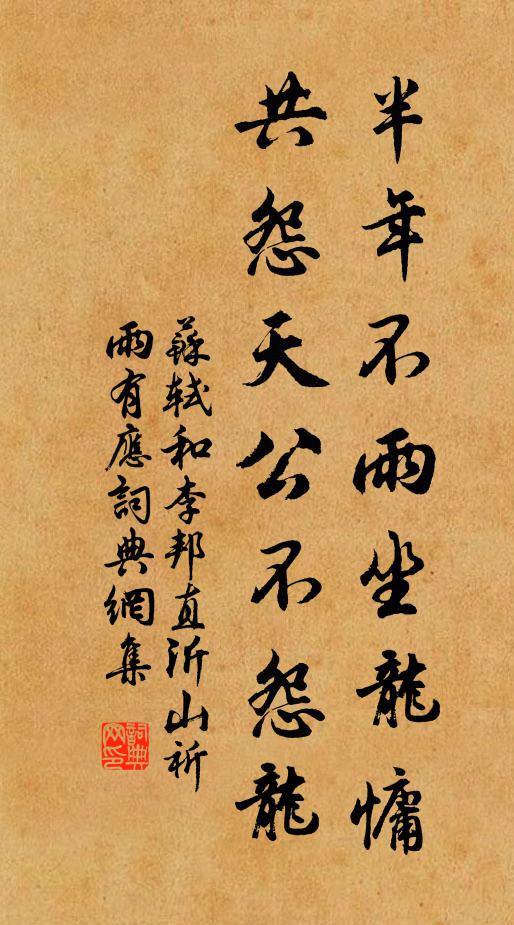 半年不雨坐龍慵
共怨天公不怨龍
蘇軾和李邦直沂山祈
雨有應詞典網集
詞典
网印